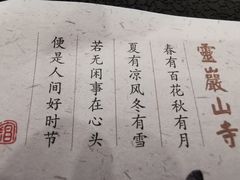 靈巖山寺
春有百花秋有月
夏有凉风冬有雪
若无闲事在心头
便是人间好时节